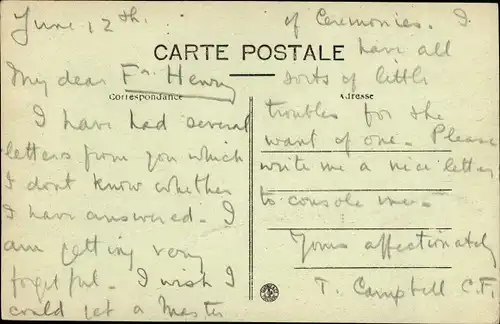 June 12th.
CARTE POSTALE
My dear Fr. Henry
Correspondance
I have had several
letters from you which
I dont know whether
I have answered. I
am getting very
forgetful. I wish I
could get a Master
of Ceremonies. I
have all
sorts of little
Adresse
troubles for the
want of one. Please
write me a nice letter
to console me.
Yours affectionately
T. Campbell C.F.